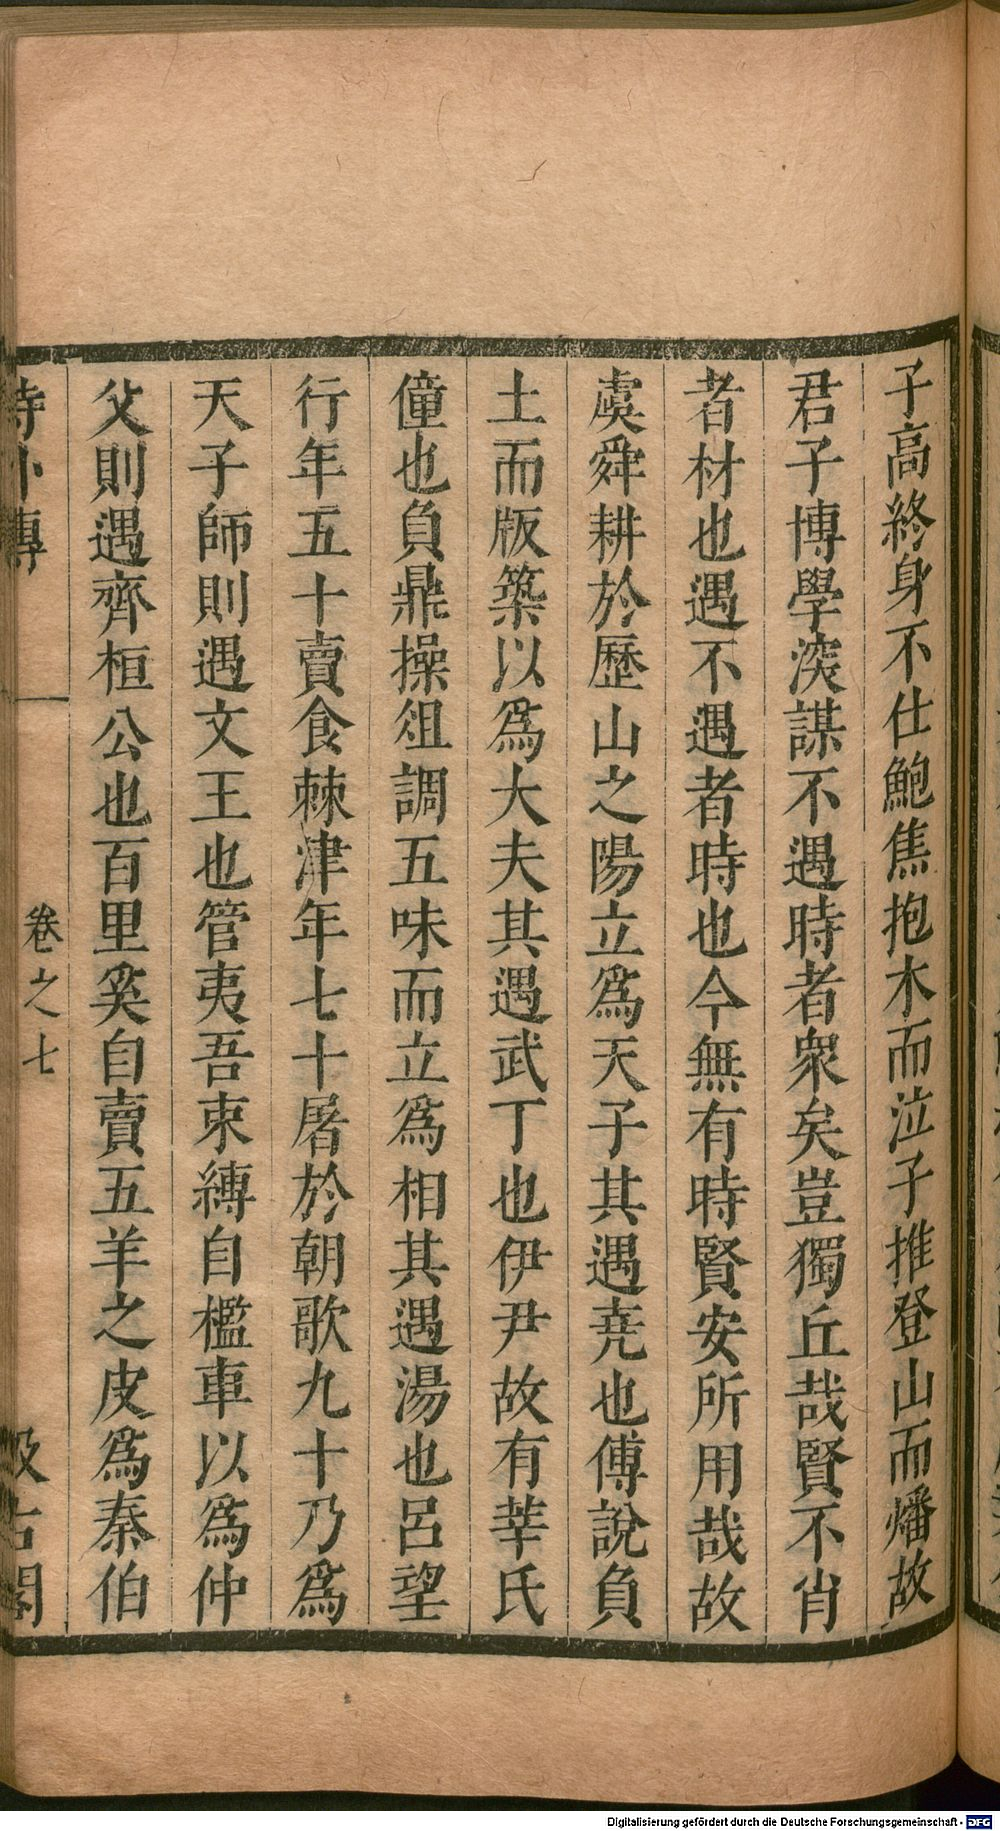 子高終身不仕鮑焦抱木而泣子推登山而燔故
君子博學深謀不遇時者衆矣豈獨丘哉賢不肖
者材也遇不遇者時也今無有時賢安所用哉故
虞舜耕於歷山之陽立爲天子其遇堯也傅說負
土而版築以爲大夫其遇武丁也伊尹故有莘氏
僮也負鼎操俎調五味而立爲相其遇湯也呂望
行年五十賣食棘津年七十屠於朝歌九十乃爲
天子師則遇文王也管夷吾束縛自檻車以爲仲
父則遇齊桓公也百里奚自賣五羊之皮爲秦伯
詩外傳
卷之七
汲古閣
Digitalisierung gefördert durch die Deutsche Forschungsgemeinschaft - DFG